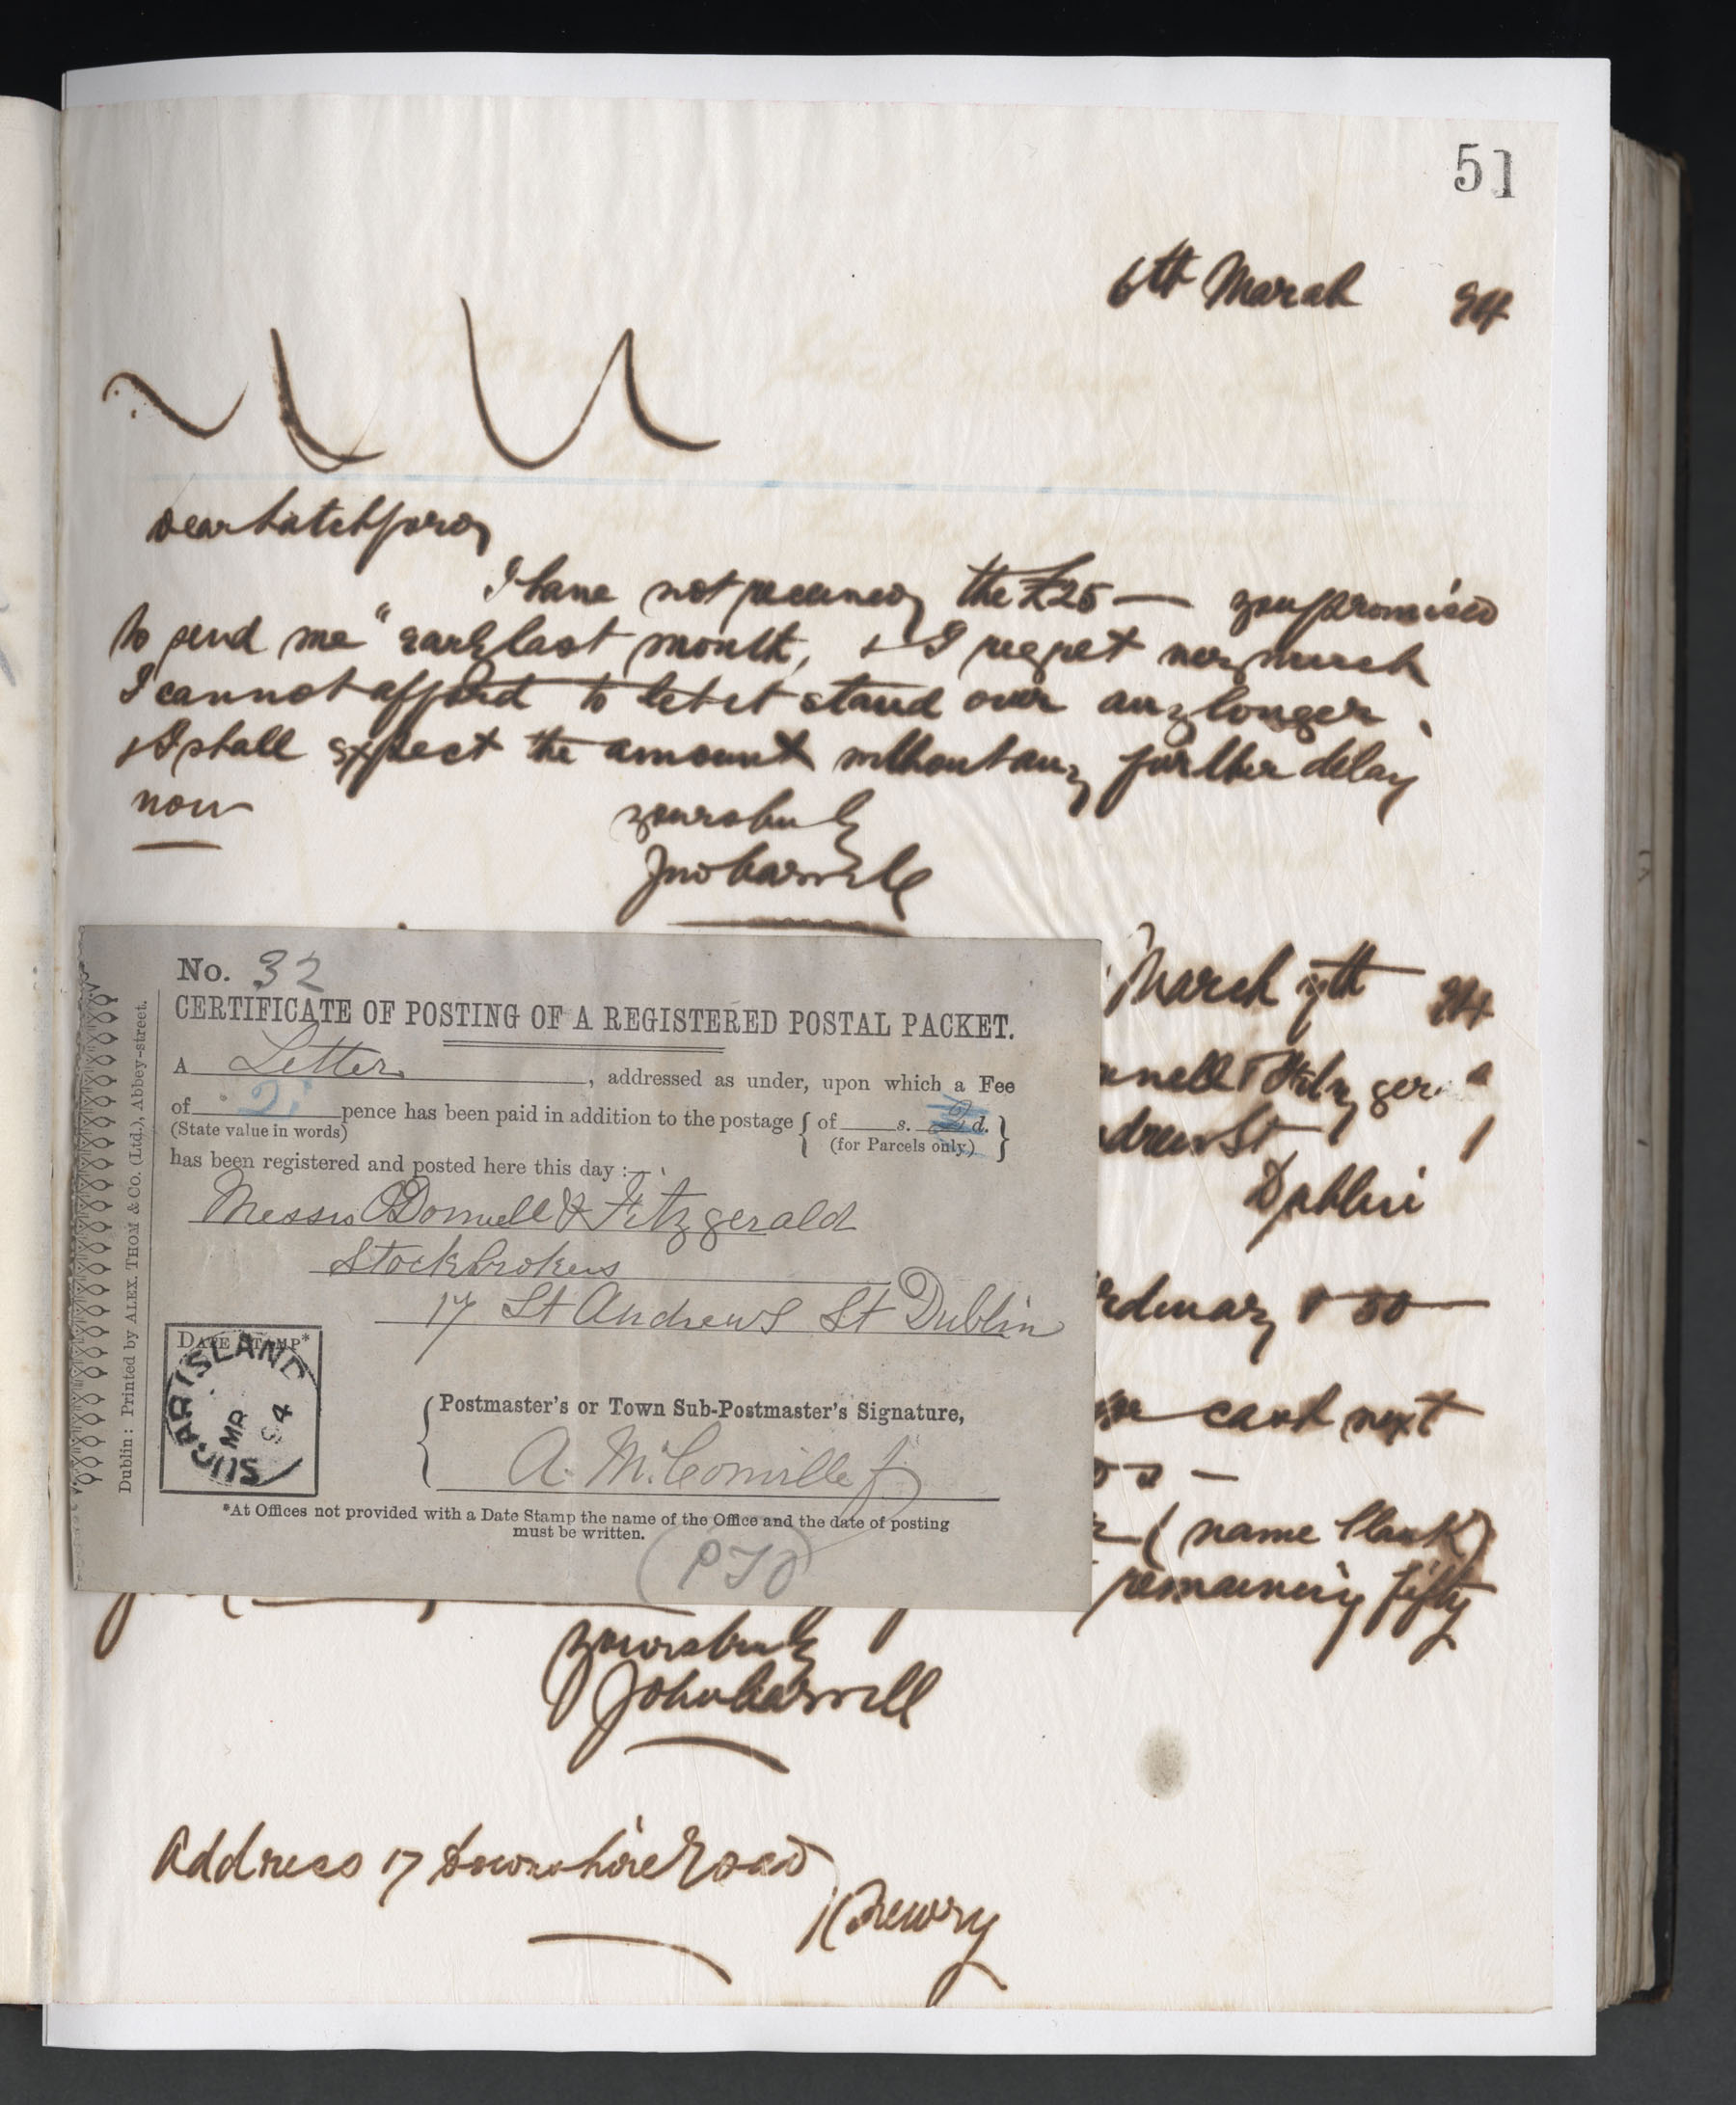 51
6th March 94
Dear Latchford
I have not received the £25 — you promised
to send me "early last month, & I regret very much
I cannot afford to let it stand over any longer.
& I shall expect the amount without any further delay
now
yours truly
Jno Carvill
March 7th 94
Dublin
cash next
(name Clark)
remaining fifty
No. 32
CERTIFICATE OF POSTING OF A REGISTERED POSTAL PACKET.
A Letter, addressed as under, upon which a Fee
of 2 pence has been paid in addition to the postage { of s. 2 d. }
(State value in words) (for Parcels only.)
has been registered and posted here this day :—
Messrs O'Donnell & Fitzgerald
Stockbrokers
17 St Andrews St Dublin
DATE STAMP*
SUGARISLAND
MR
94
Postmaster's or Town Sub-Postmaster's Signature,
A. McConville
*At Offices not provided with a Date Stamp the name of the Office and the date of posting
must be written.
(PTO)
Dublin: Printed by ALEX. THOM & Co. (Ltd.), Abbey-street.
yours truly
John Carvill
Address 17 Downshire Road
Newry